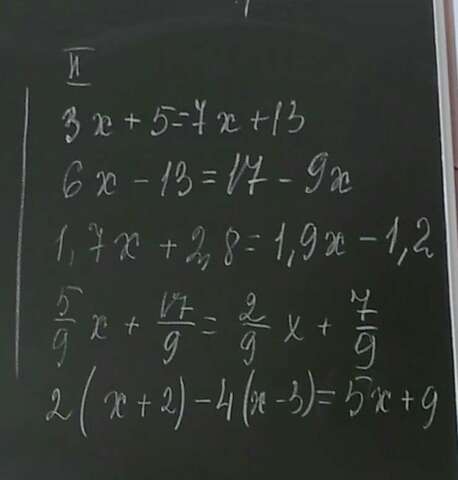 II
3x + 5 = 7x + 13
6x - 13 = 17 - 9x
1,7x + 2,8 = 1,9x - 1,2
5/9 x + 17/9 = 2/9 x + 7/9
2(x + 2) - 4(x - 3) = 5x + 9